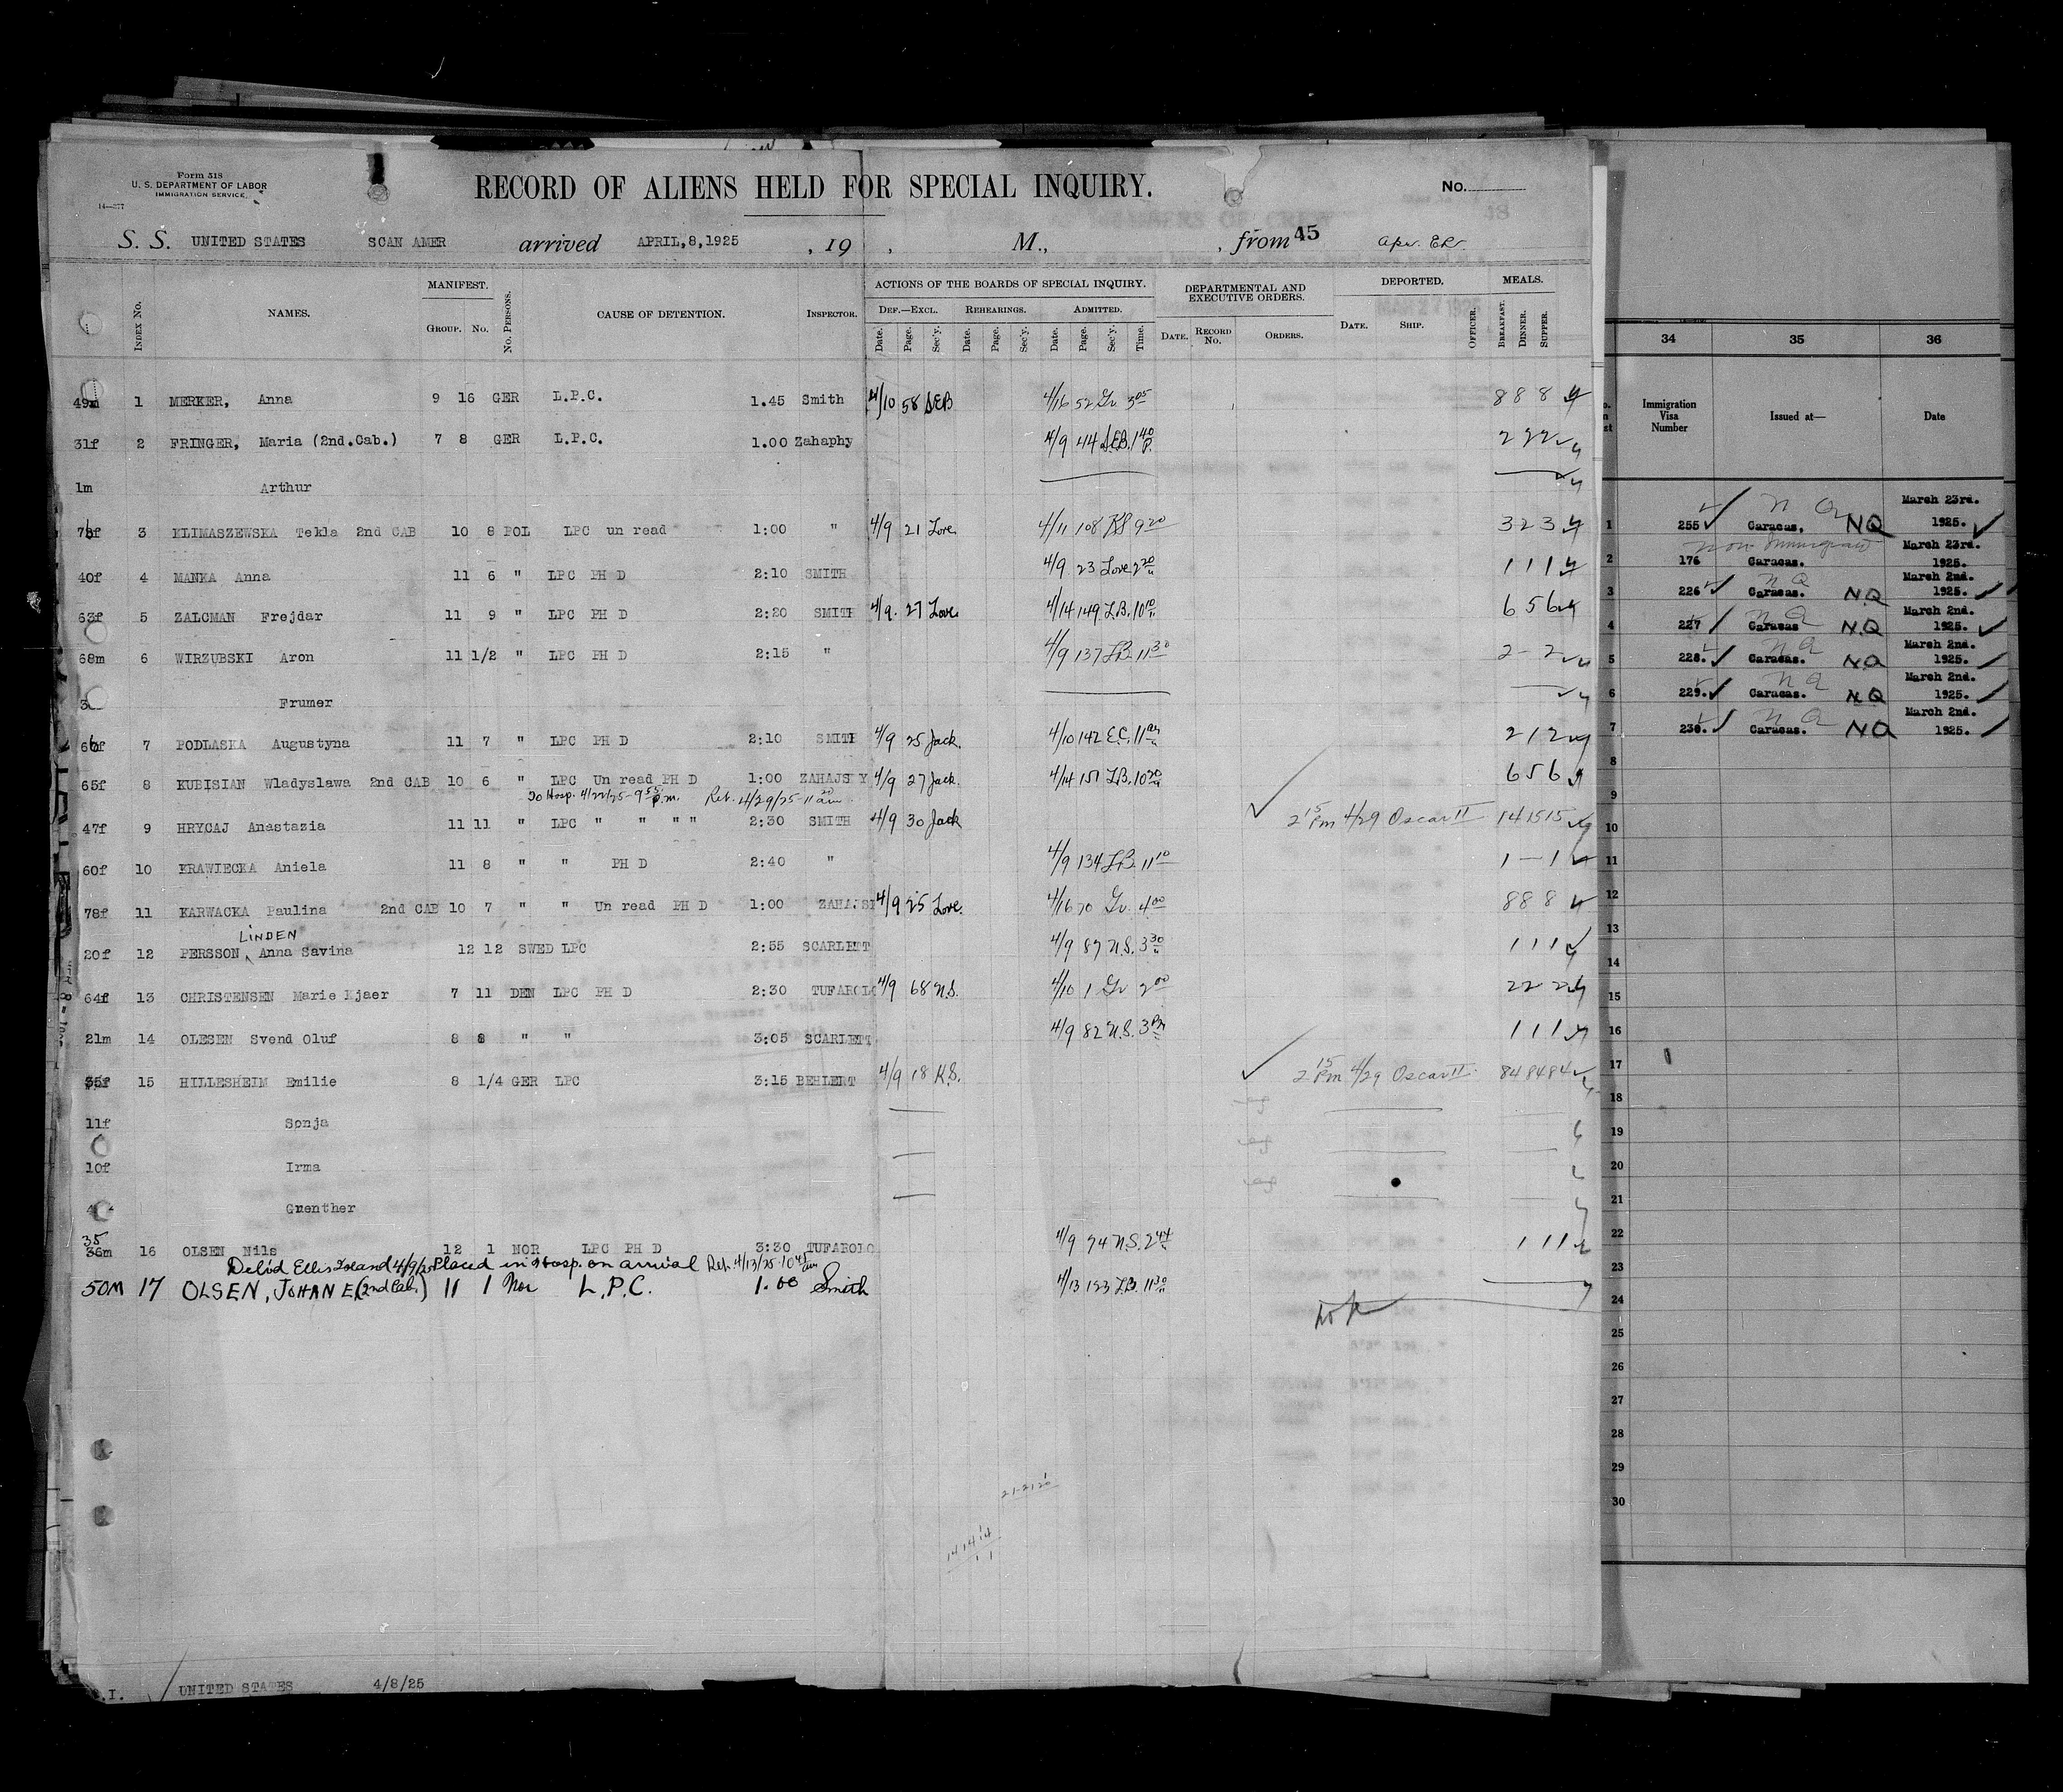 Form 518
U. S. DEPARTMENT OF LABOR
IMMIGRATION SERVICE
RECORD OF ALIENS HELD FOR SPECIAL INQUIRY.
No.
S. S. UNITED STATES SCAN AMER arrived APRIL,8,1925 , 19 , M., , from 45
INDEX No. NAMES. MANIFEST. GROUP. No. No. PERSONS. CAUSE OF DETENTION. INSPECTOR.
ACTIONS OF THE BOARDS OF SPECIAL INQUIRY. DEF.—EXCL. REHEARINGS. ADMITTED.
Date. Page. Sec'y. Date. Page. Sec'y. Date. Page. Sec'y. Time.
DEPARTMENTAL AND EXECUTIVE ORDERS. DATE. RECORD No. ORDERS.
DEPORTED. DATE. SHIP. OFFICER.
MEALS. BREAKFAST. DINNER. SUPPER.
49m 1 MERKER, Anna 9 16 GER L.P.C. 1.45 Smith 4/10 58 SEB 4/16 52 Gr 3 05 8 8 8
31f 2 FRINGER, Maria (2nd.Cab.) 7 8 GER L.P.C. 1.00 Zahaphy 4/9 44 SEB. 1 40 P. 2 2 2
1m Arthur
3 KLIMASZEWSKA Tekla 2nd CAB 10 8 POL LPC un read 1:00 " 4/9 21 Love 4/11 108 KS 9 20 3 2 3
40f 4 MANKA Anna 11 6 " LPC PH D 2:10 SMITH 4/9 23 Love 2 20 1 1 1
63f 5 ZALCMAN Frejdar 11 9 " LPC PH D 2:20 SMITH 4/9. 27 Love 4/14 149 L.B. 10 10 6 5 6
68m 6 WIRZUBSKI Aron 11 1/2 " LPC PH D 2:15 " 4/9 137 LB 11 30 2 - 2
Frumer
7 PODLASKA Augustyna 11 7 " LPC PH D 2:10 SMITH 4/9 25 Jack. 4/10 142 E.C. 11 2 1 2
65f 8 KUBISIAN Wladyslawa 2nd CAB 10 6 " LPC Un read PH D 1:00 ZAHAJSKY 4/9 27 Jack. 4/14 151 L.B. 10 20 6 5 6
To Hosp. 4/22/25-9 55 p.m. Ret. 4/29/25-11 20 am
47f 9 HRYCAJ Anastazia 11 11 " LPC " " " " 2:30 SMITH 4/9 30 Jack 2 15 Pm 4/29 Oscar II 14 15 15
60f 10 KRAWIECKA Aniela 11 8 " " PH D 2:40 " 4/9 134 L.B. 11 10 1 - 1
78f 11 KARWACKA Paulina 2nd CAB 10 7 " " Un read PH D 1:00 ZAHAJSK 4/9 25 Love. 4/16 70 Gr. 4 00 8 8 8
LINDEN
20f 12 PERSSON, Anna Savina 12 12 SWED LPC 2:55 SCARLETT 4/9 87 N.S. 3 30 1 1 1
64f 13 CHRISTENSEN Marie Kjaer 7 11 DEN LPC PH D 2:30 TUFAROLO 4/9 68 N.S. 4/10 1 Gr 2 00 2 2 2
21m 14 OLESEN Svend Oluf 8 8 " " 3:05 SCARLETT 4/9 82 N.S. 3 Pm 1 1 1
35f 15 HILLESHEIM Emilie 8 1/4 GER LPC 3:15 BEHLERT 4/9 18 K.S. 2 15 Pm 4/29 Oscar II 84 84 84
11f Sonja
10f Irma
Guenther
35
36m 16 OLSEN Nils 12 1 NOR LPC PH D 3:30 TUFAROLO 4/9 74 N.S. 2 44 1 1 1
Deliv'd Ellis Island 4/9/25 Placed in Hosp. on arrival Ret. 4/13/25-10 45 am
50M 17 OLSEN, JOHAN E (2nd Cab.) 11 1 Nor L.P.C. 1.00 Smith 4/13 123 L.B. 11 30
21-21 20
14 14 14
1 1
UNITED STATES 4/8/25
34 35 36
Immigration Visa Number Issued at— Date
1 255 Caracas. NQ March 23rd. 1925.
non immigrant
2 176 Caracas. March 23rd. 1925.
3 226 Caracas. N.Q March 2nd. 1925.
4 227 Caracas N.Q March 2nd. 1925.
5 228. Caracas. N.Q March 2nd. 1925.
6 229. Caracas. N.Q March 2nd. 1925.
7 230. Caracas. NQ March 2nd. 1925.
8
9
10
11
12
13
14
15
16
17
18
19
20
21
22
23
24
25
26
27
28
29
30